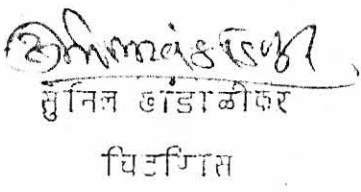 सुनिल खांडाळीकर
चिटणिस